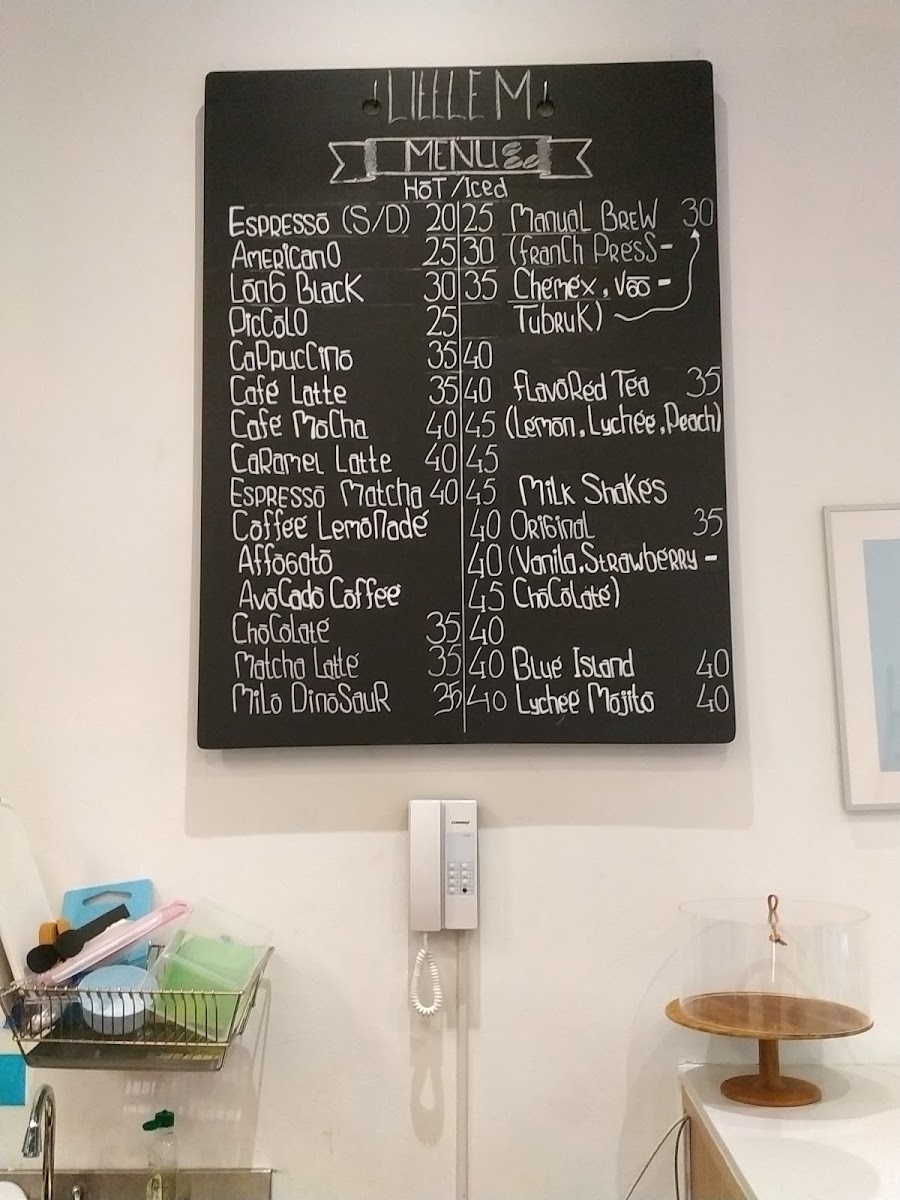 LITTLE M
MENU
HOT/Iced
Espresso (S/D) 20 25
Americano 25 30
Long Black 30 35
Piccolo 25
Cappuccino 35 40
Café Latte 35 40
Café Mocha 40 45
Caramel Latte 40 45
Espresso Matcha 40 45
Coffee Lemonade 40
Affogato 40
Avocado Coffee 45
Chocolate 35 40
Matcha Latte 35 40
Milo Dinosaur 35 40
Manual Brew 30
(Franch Press-
Chemex, V60 -
Tubruk)
Flavored Tea 35
(Lemon, Lychee, Peach)
Milk Shakes
Original 35
(Vanila, Strawberry -
Chocolate)
Blue Island 40
Lychee Mojito 40